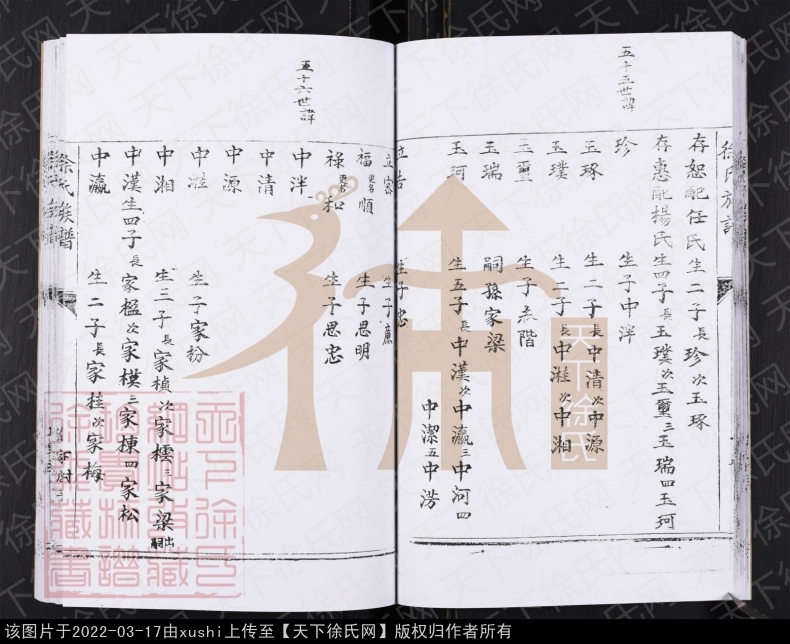 徐氏族譜
存恕配任氏生二子長珍次玉琢
存惠配楊氏生四子長玉璞次玉璽三玉瑞四玉珂
五十五世諱
珍 生子中泮
玉琢 生二子長中清次中源
玉璞 生二子長中溎次中湘
玉璽 生子 階
玉瑞 嗣孫家梁
玉珂 生五子長中漢次中瀛三中河四
中潔五中涝
立 生子忠
立 生子廉
福更名順 生子思明
祿更名和 生子思忠
五十六世諱
中泮
中清
中源
中溎 生子家粉
中湘 生三子長家楨次家櫄三家梁出嗣
中漢生四子長家楹次家模三家棟四家松
中瀛 生二子長家桂次家梅
徐氏族譜
天下徐氏
天下徐氏网
该图片于2022-03-17由xushi上传至【天下徐氏网】版权归作者所有